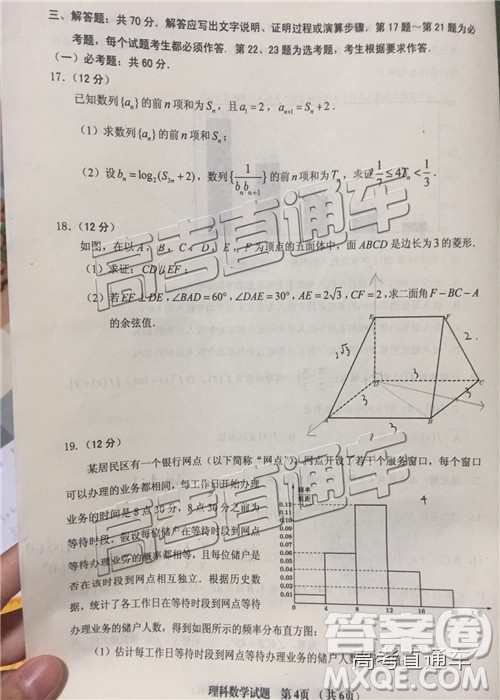 三、解答题：共 70 分．解答应写出文字说明、证明过程或演算步骤．第 17 题～第 21 题为必
考题，每个试题考生都必须作答．第 22、23 题为选考题，考生根据要求作答．
（一）必考题：共 60 分．
17.（12 分）
已知数列{aₙ}的前 n 项和为 Sₙ，且 a₁ = 2，aₙ₊₁ = Sₙ + 2．
（1）求数列{aₙ}的前 n 项和 Sₙ；
（2）设 bₙ = log₂(S₃ₙ + 2)，数列{1/(bₙbₙ₊₁)}的前 n 项和为 Tₙ，求证 1/7 ≤ 4Tₙ < 1/3．
18.（12 分）
如图，在以 A，B，C，D，E，F 为顶点的五面体中，面 ABCD 是边长为 3 的菱形．
（1）求证：CD∥EF；
（2）若 EF⊥DE，∠BAD = 60°，∠DAE = 30°，AE = 2√3，CF = 2，求二面角 F－BC－A
的余弦值．
E
F
2√3
2
D
C
A
B
3
3
19.（12 分）
某居民区有一个银行网点（以下简称“网点”），网点开设了若干个服务窗口，每个窗口
可以办理的业务都相同，每工作日开始办理
业务的时间是 8 点 30 分，8 点 30 分之前为
等待时段．假设每位储户在等待时段到网点
等待办理业务的概率都相等，且每位储户是
否在该时段到网点相互独立．根据历史数
据，统计了各工作日在等待时段到网点等待
办理业务的储户人数，得到如图所示的频率分布直方图：
频率
组距
4
0.12
0.11
0.10
0.09
0.08
0.07
0.06
0.05
0.04
0.03
0.02
0.01
0 4 8 12 16
（1）估计每工作日等待时段到网点等待办理业务的储户人数
理科数学试题 第 4 页 （共 6 页）
高考直通车
高考直通车
高考直通车
答案圈